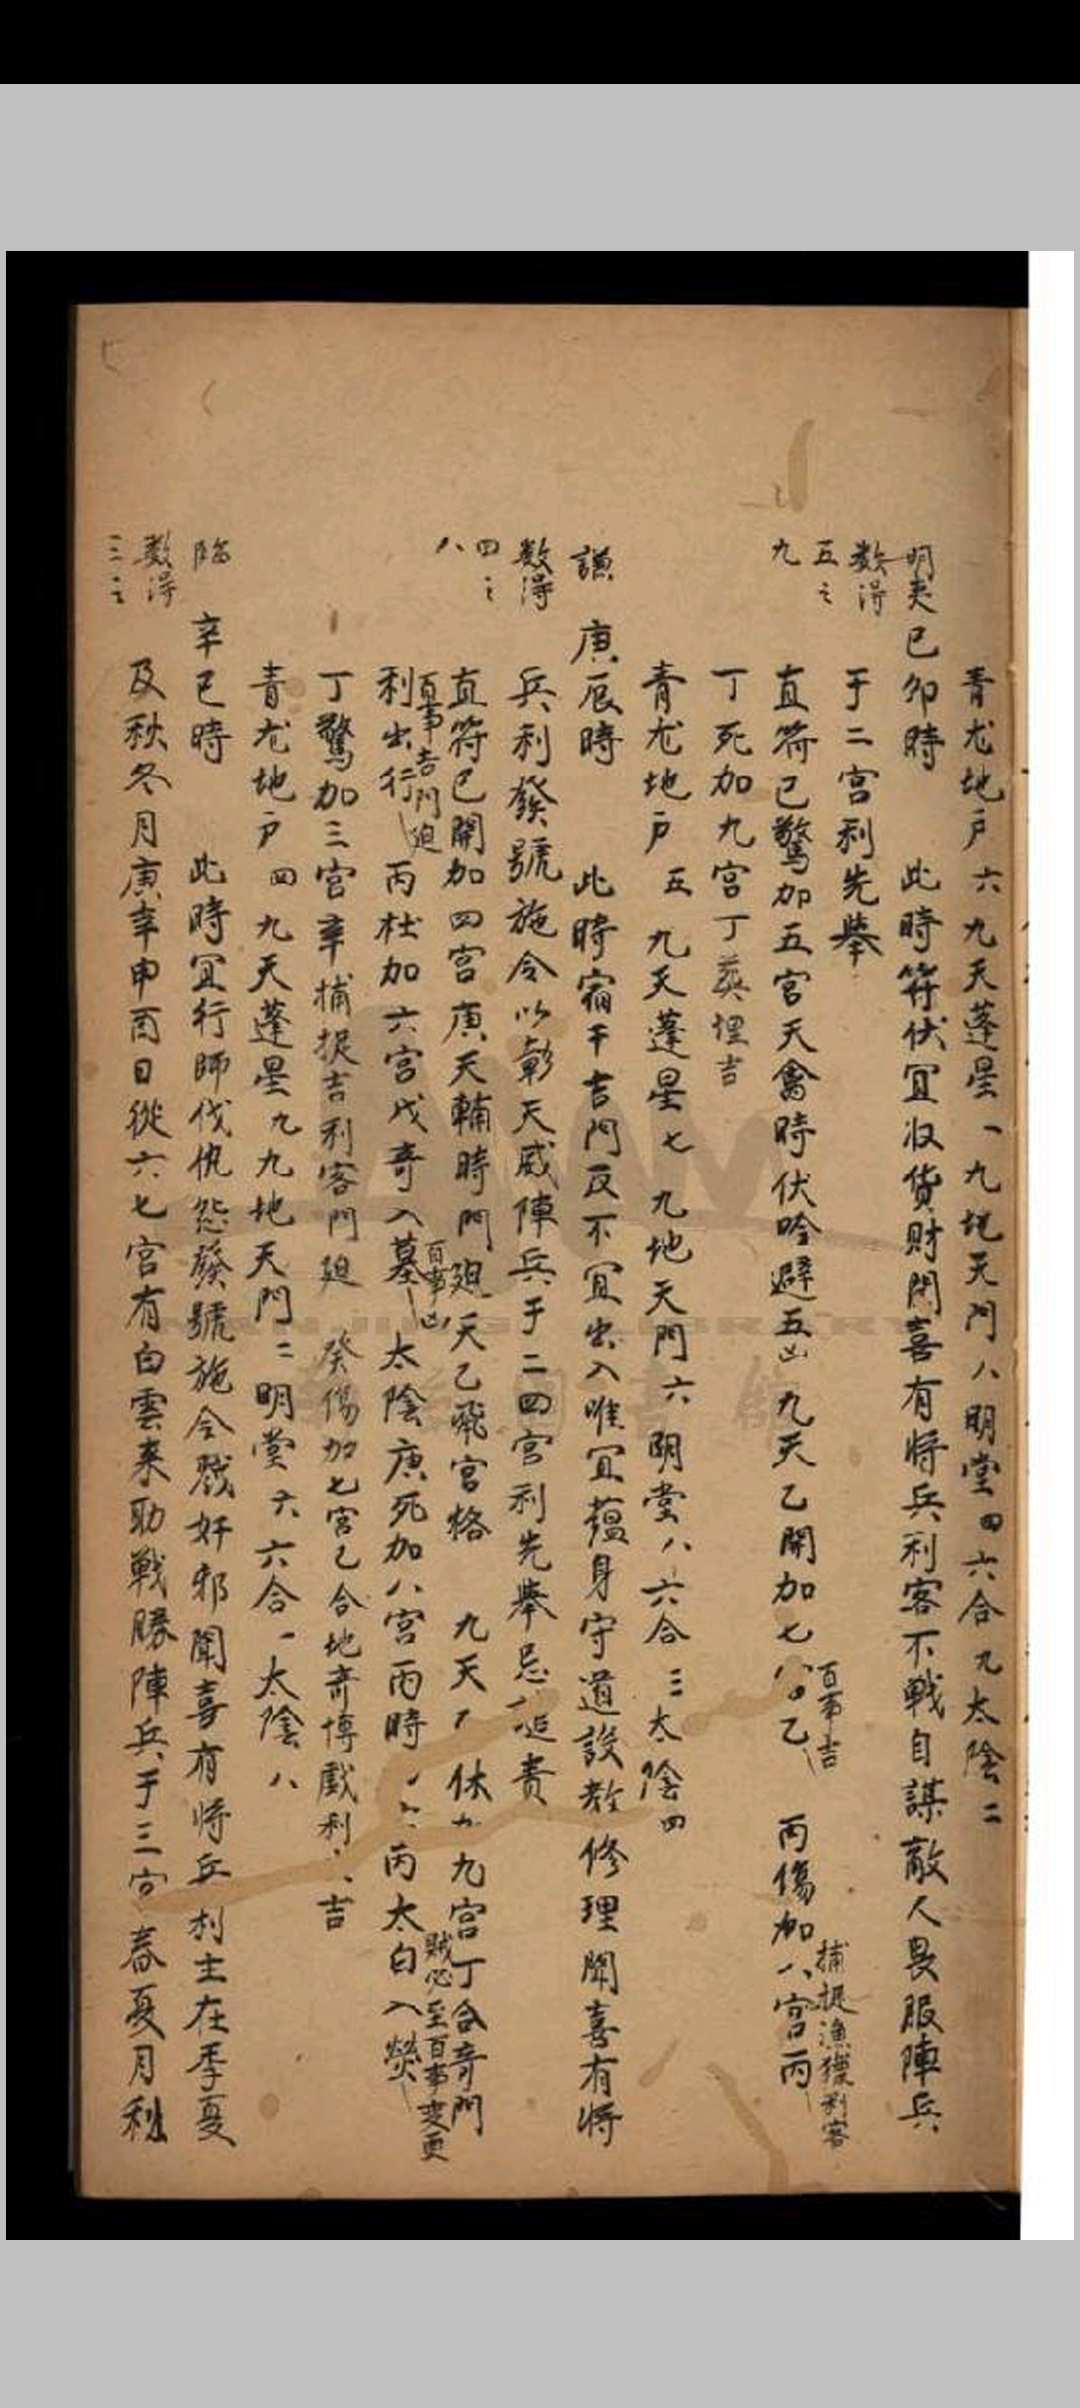 青尤地户六 九天蓬星一 九地天门八 明堂四 六合九 太陰二
明夷 己卯時 此時符伏宜收货財闭喜有将兵利客不戰自謀敵人畏服陣兵
数得五之九 于二宫利先举
直符己驚加五宫天禽時伏吟避五凶 九天乙開加七宫乙 百事吉 丙傷加八宫丙 捕捉漁獵利客
丁死加九宫丁葬埋吉
青尤地户五 九天蓬星七 九地天門六 明堂八 六合三 太陰四
謙 庚辰時 此時宿干吉门反不宜出入唯宜蕴身守道設教修理聞喜有将
数得四之八 兵利發號施令以彰天威陣兵于二四宫利先举忌追责
直符己開加四宫庚天輔時門廹天乙飛宫格 九天 休 九宫丁合奇門
利出行 百事吉門廹 丙杜加六宫戊奇入墓 百事凶 太陰庚死加八宫丙時 丙太白入熒 贼必至百事变更
丁驚加三宫辛捕捉吉利客門廹 癸傷加七宫乙合地奇博戲利 吉
青尤地户四 九天蓬星九 九地天門二 明堂六 六合一 太陰八
臨 辛巳時 此時宜行師伐仇怨發號施令戮奸邪聞喜有将兵利主在季夏
数得三之 及秋冬月庚辛申酉日從六七宫有白雲来助戰勝陣兵于三宫 春夏月利